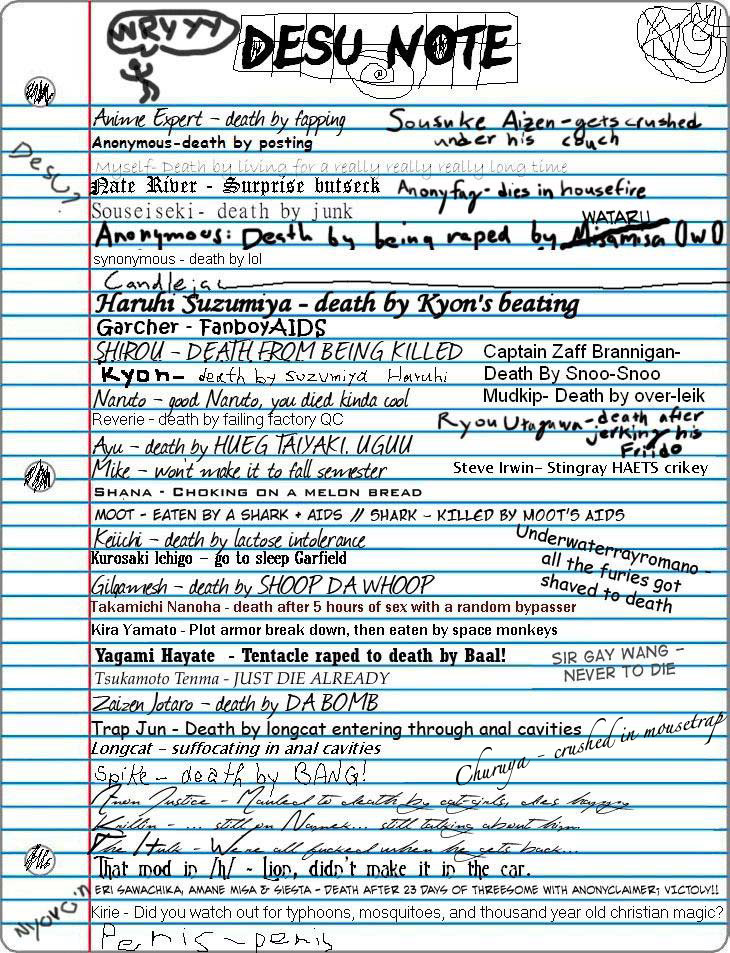 WRYYY
DESU NOTE
Anime Expert – death by fapping
Sousuke Aizen – gets crushed
under his couch
Anonymous-death by posting
Myself- Death by living for a really really really long time
Desu?
Nate River - Surprise butseck
Anonyfag - dies in housefire
Souseiseki- death by junk
WATARU
Anonymous: Death by being raped by Misamisa OwO
synonymous - death by lol
Candlejac
Haruhi Suzumiya - death by Kyon's beating
Garcher - FanboyAIDS
SHIROU – DEATH FROM BEING KILLED
Captain Zaff Brannigan-
Death By Snoo-Snoo
Kyon- death by Suzumiya Haruhi
Naruto – good Naruto, you died kinda cool
Mudkip- Death by over-leik
Reverie - death by failing factory QC
Ryou Utagawa - death after
jerking his
Friido
Ayu – death by HUEG TAIYAKI. UGUU
Mike – won't make it to fall semester
Steve Irwin– Stingray HAETS crikey
SHANA - CHOKING ON A MELON BREAD
MOOT - EATEN BY A SHARK + AIDS // SHARK - KILLED BY MOOT'S AIDS
Keiichi – death by lactose intolerance
Underwaterrayromano -
all the furies got
shaved to death
Kurosaki Ichigo – go to sleep Garfield
Gilgamesh – death by SHOOP DA WHOOP
Takamichi Nanoha - death after 5 hours of sex with a random bypasser
Kira Yamato - Plot armor break down, then eaten by space monkeys
Yagami Hayate - Tentacle raped to death by Baal!
SIR GAY WANG –
NEVER TO DIE
Tsukamoto Tenma - JUST DIE ALREADY
Zaizen Jotaro – death by DA BOMB
Trap Jun - Death by longcat entering through anal cavities
Longcat – suffocating in anal cavities
Churuya - crushed in mousetrap
Spike – death by BANG!
Anon Justice - Mauled to death by cat-girls, dies happy
Krillin - ... still on Namek... still talking about him.
The Hulk - We're all fucked when he gets back...
That mod in /h/ - Lion, didn't make it in the car.
ERI SAWACHIKA, AMANE MISA & SIESTA - DEATH AFTER 23 DAYS OF THREESOME WITH ANONYCLAIMER; VICTOLY!!
Kirie - Did you watch out for typhoons, mosquitoes, and thousand year old christian magic?
Penis – penis